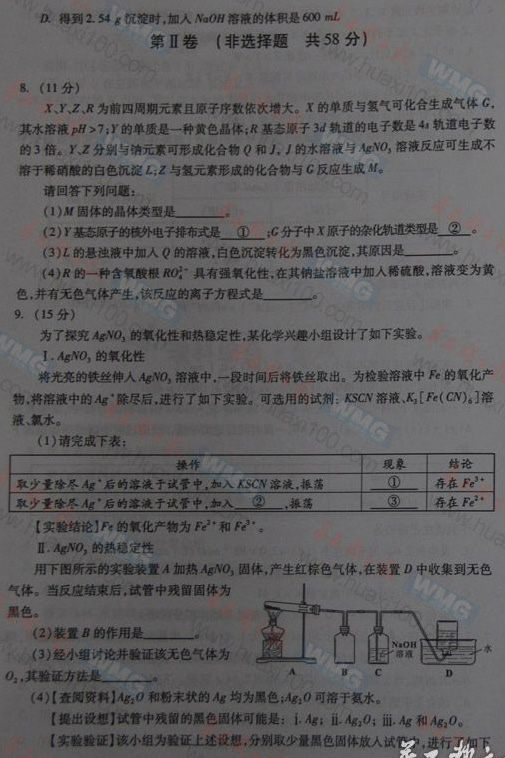 D. 得到2.54 g沉淀时,加入NaOH溶液的体积是600 mL
第Ⅱ卷 (非选择题 共58分)
8. (11分)
X、Y、Z、R为前四周期元素且原子序数依次增大。X的单质与氢气可化合生成气体G,
其水溶液pH>7;Y的单质是一种黄色晶体;R基态原子3d轨道的电子数是4s轨道电子数
的3倍。Y、Z分别与钠元素可形成化合物Q和J,J的水溶液与AgNO₃溶液反应可生成不
溶于稀硝酸的白色沉淀L;Z与氢元素形成的化合物与G反应生成M。
请回答下列问题:
(1)M固体的晶体类型是______。
(2)Y基态原子的核外电子排布式是 ① ;G分子中X原子的杂化轨道类型是 ② 。
(3)L的悬浊液中加入Q的溶液,白色沉淀转化为黑色沉淀,其原因是______。
(4)R的一种含氧酸根RO₄²⁻具有强氧化性,在其钠盐溶液中加入稀硫酸,溶液变为黄
色,并有无色气体产生,该反应的离子方程式是______。
9. (15分)
为了探究AgNO₃的氧化性和热稳定性,某化学兴趣小组设计了如下实验。
Ⅰ. AgNO₃的氧化性
将光亮的铁丝伸入AgNO₃溶液中,一段时间后将铁丝取出。为检验溶液中Fe的氧化产
物,将溶液中的Ag⁺除尽后,进行了如下实验。可选用的试剂:KSCN溶液、K₃[Fe(CN)₆]溶
液、氯水。
(1)请完成下表:
操作 现象 结论
取少量除尽Ag⁺后的溶液于试管中,加入KSCN溶液,振荡 ① 存在Fe³⁺
取少量除尽Ag⁺后的溶液于试管中,加入 ② ,振荡 ③ 存在Fe²⁺
【实验结论】Fe的氧化产物为Fe²⁺和Fe³⁺。
Ⅱ. AgNO₃的热稳定性
用下图所示的实验装置A加热AgNO₃固体,产生红棕色气体,在装置D中收集到无色
气体。当反应结束后,试管中残留固体为
黑色。
(2)装置B的作用是______。
(3)经小组讨论并验证该无色气体为
O₂,其验证方法是______。
NaOH
溶液
水
A B C D
(4)【查阅资料】Ag₂O和粉末状的Ag均为黑色;Ag₂O可溶于氨水。
【提出设想】试管中残留的黑色固体可能是:ⅰ. Ag;ⅱ. Ag₂O;ⅲ. Ag和Ag₂O。
【实验验证】该小组为验证上述设想,分别取少量黑色固体放入试管中,进行了如下
www.huaxi100.com
WMG